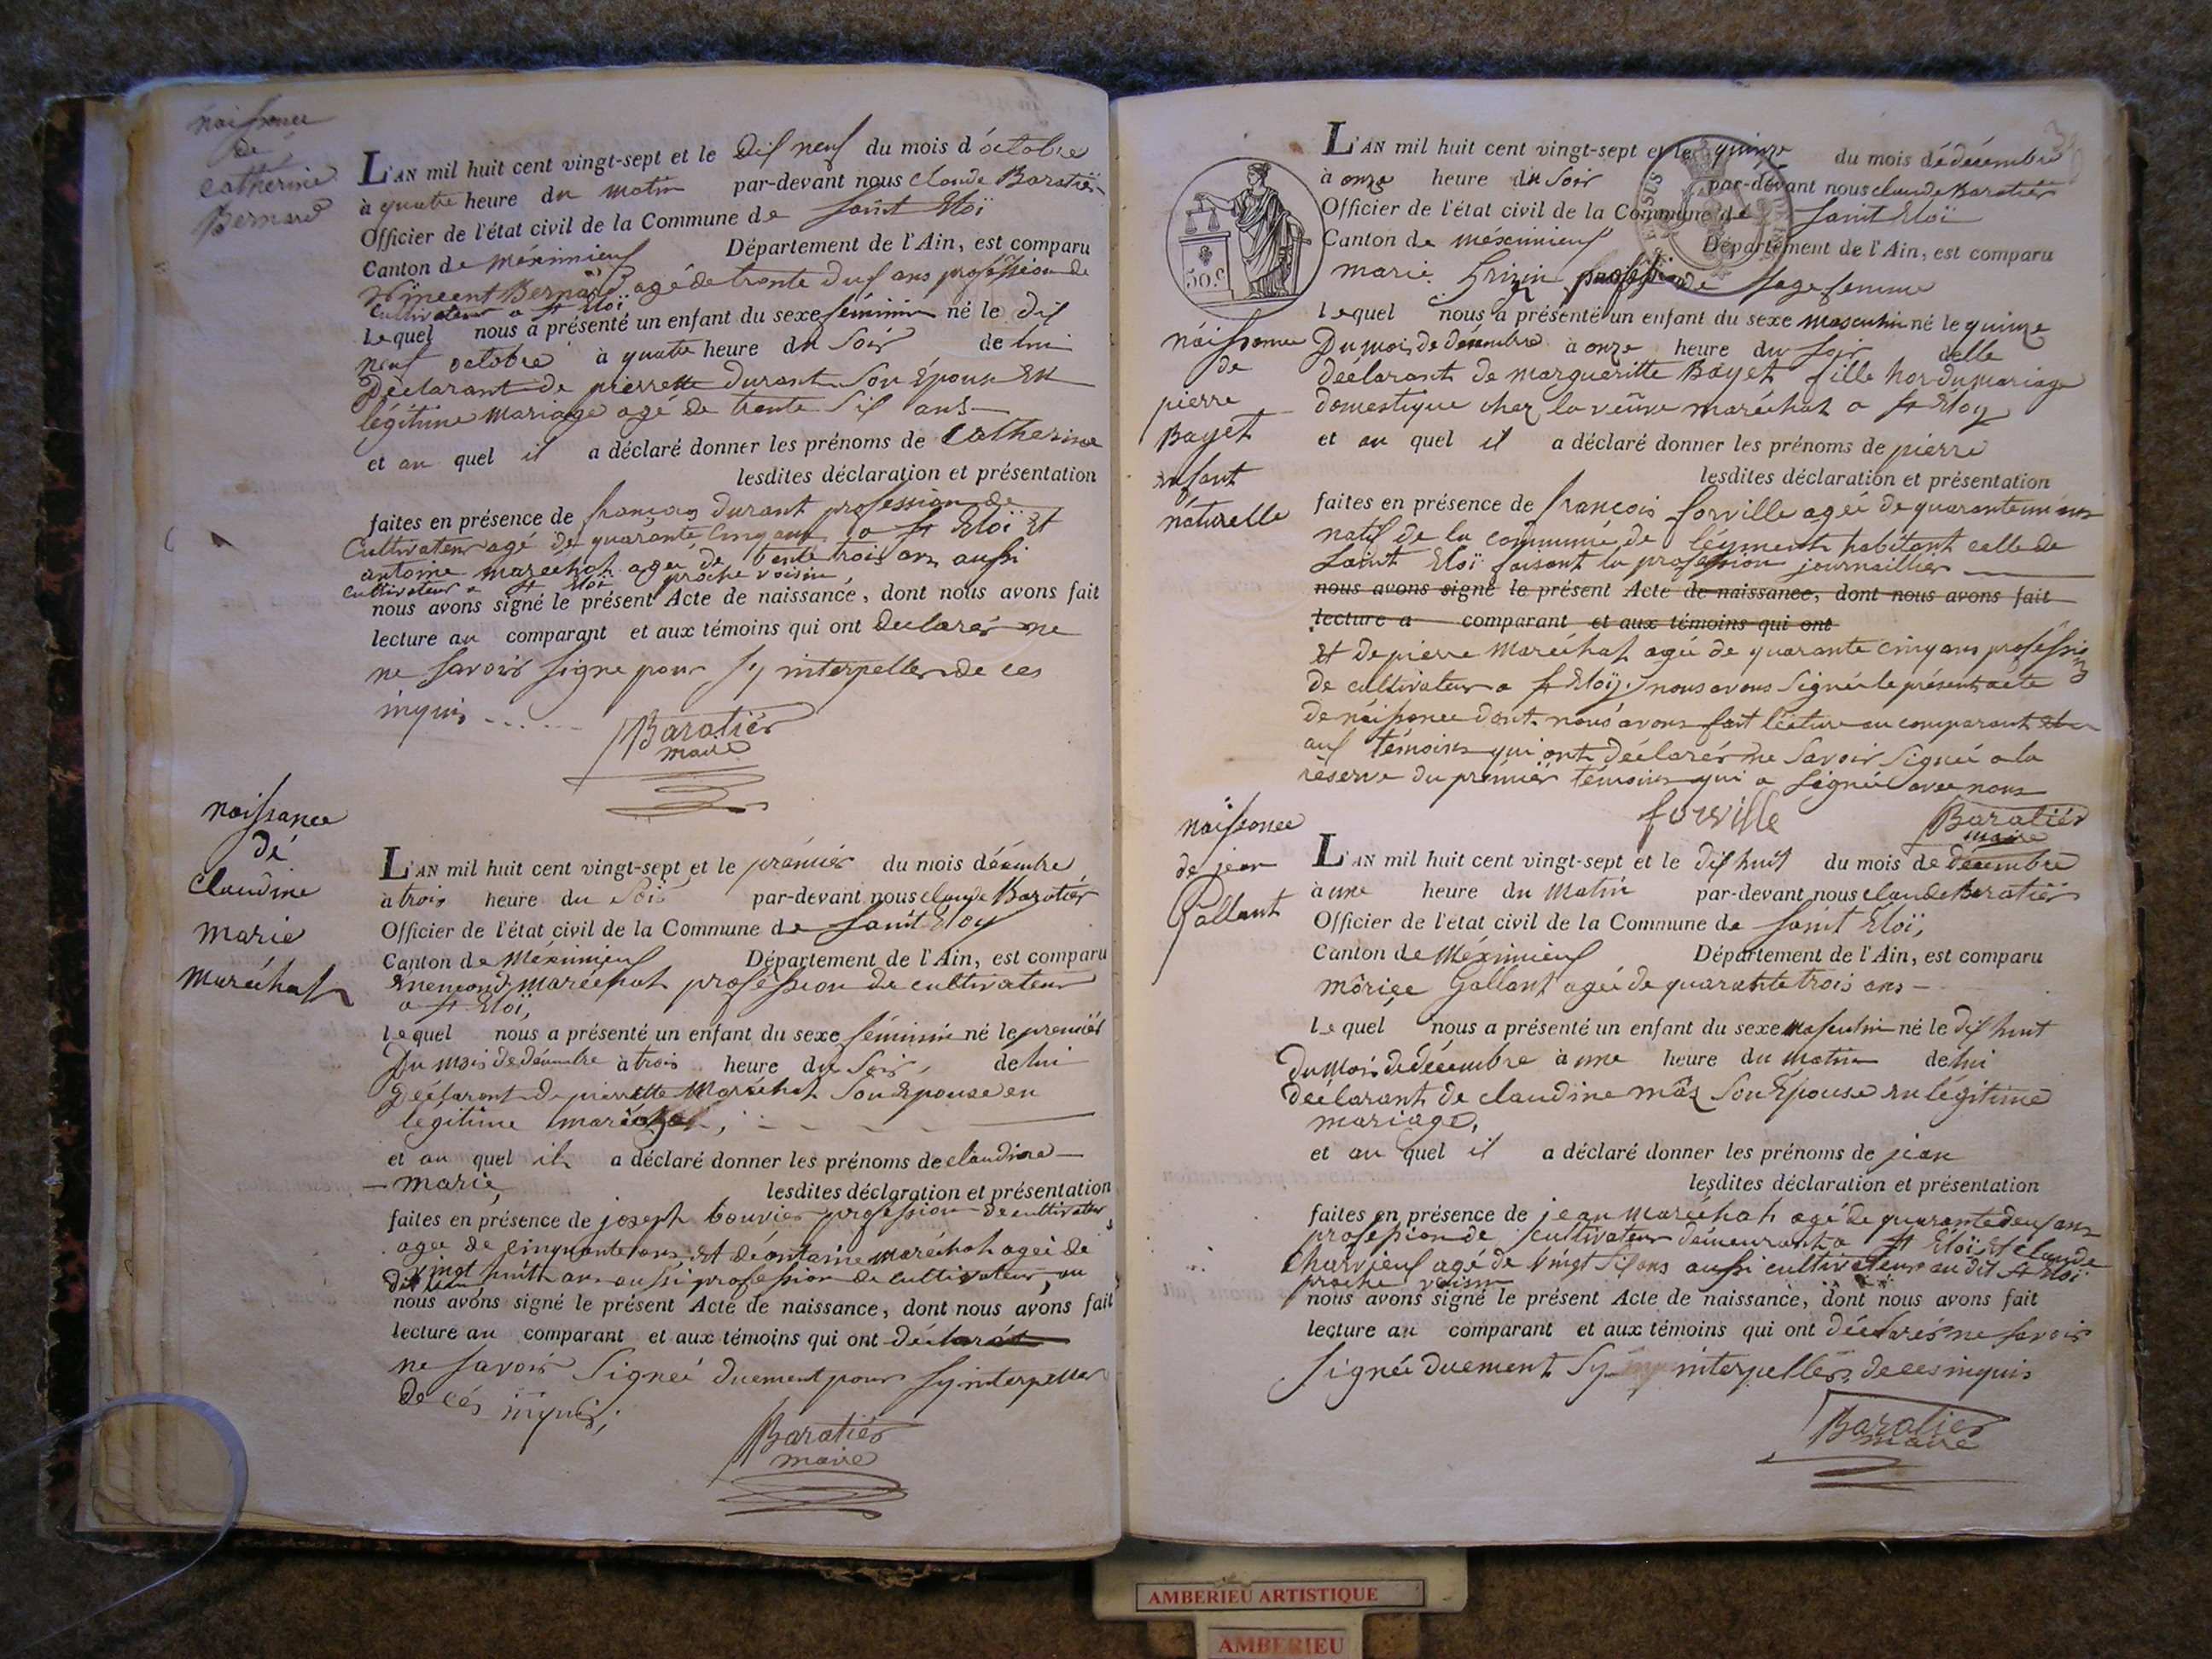 naissance
de
catherine
Bernard
L'AN mil huit cent vingt-sept et le dix neuf du mois d'octobre
à quatre heure du matin par-devant nous claude Baratier
Officier de l'état civil de la Commune de saint Eloï
Canton de méximieux Département de l'Ain, est comparu
Vinceent Bernard agé de trente deux ans profession de
cultivateur a st Eloï
Lequel nous a présenté un enfant du sexe féminin né le dix
neuf octobre à quatre heure du soir de lui
Déclarant de pierrette durant son Epouse En
légitime mariage agé de trente six ans
et au quel il a déclaré donner les prénoms de Catherine
lesdites déclaration et présentation
faites en présence de françois durant profession de
Cultivateur agé de quarante cinq ans a st Eloï Et
antoine maréchal agée de trente trois ans aussi
cultivateur a st Eloï proche voisin
nous avons signé le présent Acte de naissance, dont nous avons fait
lecture au comparant et aux témoins qui ont declarés ne
ne savoir signe pour s'y interpeller de ces
inquis
Baratiér
maire
naissance
dé
claudine
marie
maréchal
L'AN mil huit cent vingt-sept et le prémiér du mois décembre
à trois heure du soir par-devant nous claude Baratiér
Officier de l'état civil de la Commune de saint Eloy
Canton de Méximieux Département de l'Ain, est comparu
maréchal profession de cultivateur
a st Eloï,
Lequel nous a présenté un enfant du sexe féminin né le premiér
Du mois de décembre à trois heure du soir, de lui
Déclarant de pierrette Maréchal son Epouse en
légitime mariage
et au quel il a déclaré donner les prénoms de claudine
marie, lesdites déclaration et présentation
faites en présence de joseph bouvier profession de cultivateur
agee de cinquante ans Et dé antoine maréchal ageé de
vingt huit ans aussi profession de cultivateur, au
dit lieu
nous avons signé le présent Acte de naissance, dont nous avons fait
lecture au comparant et aux témoins qui ont déclarés
ne savoir Signeé duement pour sy interpeller
de cés inquis;
Baratiér
maire
50.c
L'AN mil huit cent vingt-sept et le quinze du mois dédécembre
à onze heure du soir par-devant nous claude Baratier
Officier de l'état civil de la Commune de saint Eloï
Canton de méximieux Département de l'Ain, est comparu
marie profession de sage femme
Lequel nous a présenté un enfant du sexe masculin né le quinze
naissance
de
pierre
Bayet
enfant
naturelle
Du mois de décembre à onze heure du soir delle
déclarant de margueritte Bayet fille hor du mariage
domestique chez la veüve maréchal a st Eloy
et au quel il a déclaré donner les prénoms de piérre
lesdites déclaration et présentation
faites en présence de françois forville ageé de quarante un ans
natif de la commune de léyment habitant celle de
saint Eloï faisant la profession journaillier
nous avons signé le présent Acte de naissance, dont nous avons fait
lecture a comparant et aux témoins qui ont
Et de pierre Maréchal ageé de quarante cinq ans profession
de cultivateur a st Eloÿ. nous avons Signée le présent acte
de naissance dont nous avons fait lécture au comparant
aux témoins qui ont déclarés ne savoir Signeé a la
réserve du prémiér témoins qui a Signeé avec nous
forville
Baratiér
maire
naissance
de jean
Gallant
L'AN mil huit cent vingt-sept et le dix huit du mois de décembre
à une heure du Matin par-devant nous claude Baratier
Officier de l'état civil de la Commune de saint Eloï,
Canton de Méximieux Département de l'Ain, est comparu
môrice Gallant ageé de quarante trois ans
Lequel nous a présenté un enfant du sexe masculin né le dix huit
du mois de décembre à une heure du matin de lui
déclarant de claudine mâs son Epouse en légitime
mariage,
et au quel il a déclaré donner les prénoms de jean
lesdites déclaration et présentation
faites en présence de jean maréchal agé de quarante deux ans
profession de cultivateur demeurant a st Eloï Et claude
Charvieux agé de vingt six ans aussi cultivateur au dit st Eloï
proche voisin
nous avons signé le présent Acte de naissance, dont nous avons fait
lecture au comparant et aux témoins qui ont déclarés ne savoir
Signée duement Sy interpellér de ces inquis
Baratier
maire
AMBERIEU ARTISTIQUE
AMBERIEU